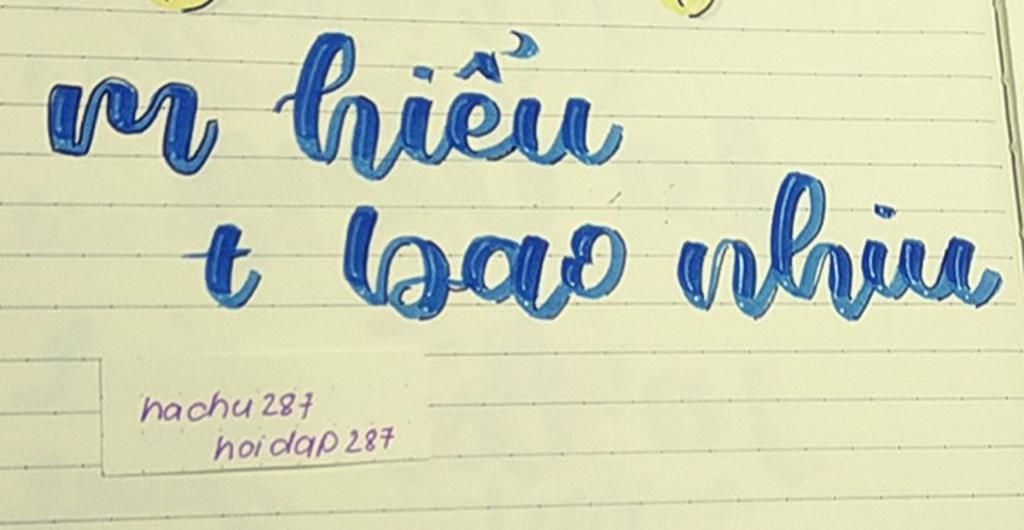 m hiểu
t bao nhiu
hachu287
hoidap287